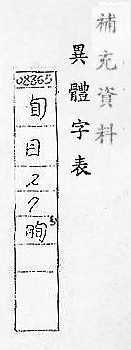 補充資料
異體字表
08365
旬
日
2
7